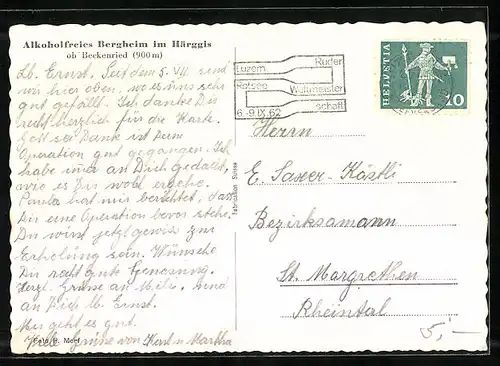 Alkoholfreies Bergheim im Härggis
ob Beckenried (900 m)
Lb. Ernst. Seit dem 5. VII. sind
wir hier oben, wo es uns sehr
gut gefällt. Ich danke Dir
recht herzlich für die Karte.
Gott sei Dank ist Deine
Operation gut gegangen. Ich
habe immer an Dich gedacht,
wie es Dir wohl ergehe.
Paula hat mir berichtet, dass
Dir eine Operation bevor stehe.
Du wirst jetzt gewiss zur
Erholung sein. Wünsche
Dir recht gute Genesung.
Herzl. Grüsse an Mili. und
an Dich lb. Ernst.
Mir geht es gut.
Viele Grüsse von Karl u. Martha
Fabrikation Suisse
Luzern Ruder
Rotsee Weltmeister
6.-9.IX.62 schaft
HELVETIA
10
Herrn
E. Saxer-Köstli
Bezirksamann
St. Margrethen
Rheintal
5,-